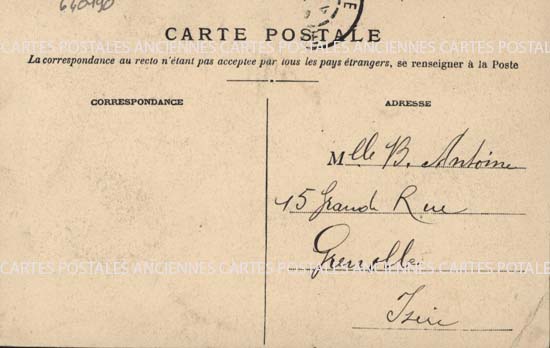 640190
CARTE POSTALE
CARTES POSTALES ANCIENNES CARTES POSTALES ANCIENNES CARTES POSTALES
La correspondance au recto n'étant pas acceptée par tous les pays étrangers, se renseigner à la Poste
CORRESPONDANCE
ADRESSE
Mlle B. Antoine
15 Grande Rue
Grenoble
CARTES POSTALES ANCIENNES CARTES POSTALES ANCIENNES CARTES POSTALES
Isère